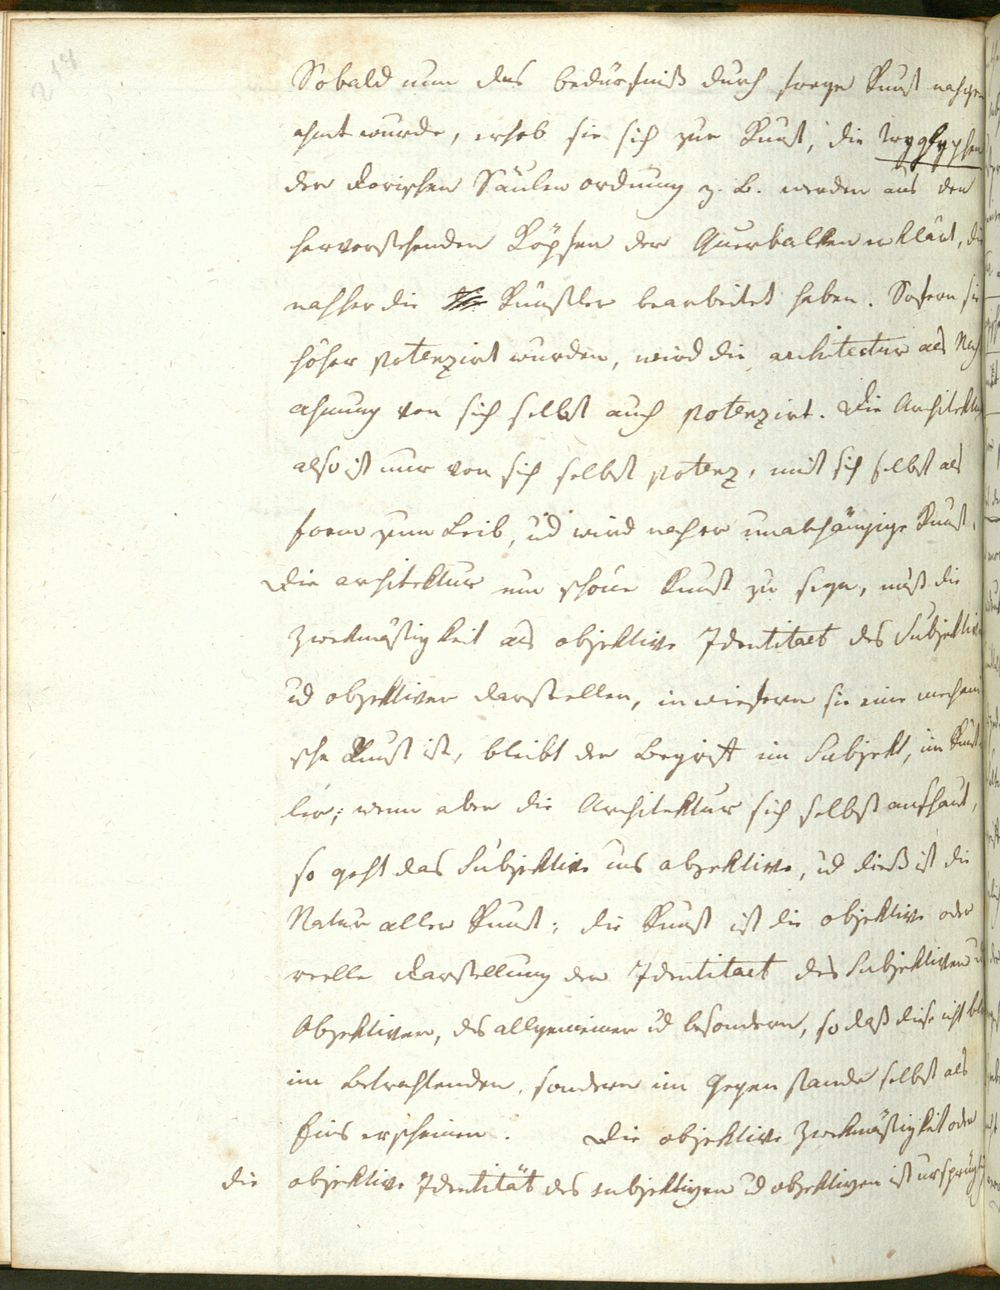 214
Sobald nun das bedürfniß durch freye Kunst nachge
ahmt wurde, erhob sie sich zur Kunst, die Tryglyphen
der dorischen Säulen ordnung z. B. werden aus den
hervorstehenden Köpfen der Querbalken erklärt, die
nachher die Künstler bearbeitet haben. Sofern sie
höher potenzirt wurden, wird die architectur als Nach
ahmung von sich selbst auch potenzirt. Die Architektur
also ist nur von sich selbst potenz, mit sich selbst als
form zum Leib, ud wird nachher unabhängige Kunst.
Die architektur um schöne Kunst zu seyn, muß die
Zwekmäßigkeit als objektive Identitaet des Subjektiven
ud objektiven darstellen, in wiefern sie eine mechani
sche Kunst ist, bleibt der Begriff im Subjekt, im Künst
ler; wenn aber die Architektur sich selbst anschaut,
so geht das Subjektive ins objektive, ud dieß ist die
Natur aller Kunst; die Kunst ist die objektive oder
reelle darstellung der Identitaet des Subjektiven ud
Objektiven, des allgemeinen ud besondern, so daß diese nicht blos
im Betrachtenden, sondern im Gegenstande selbst als
Eins erscheinen. Die objektive Zwekmäßigkeit oder
die objektive Identität des subjektiven ud objektiven ist ursprüngli